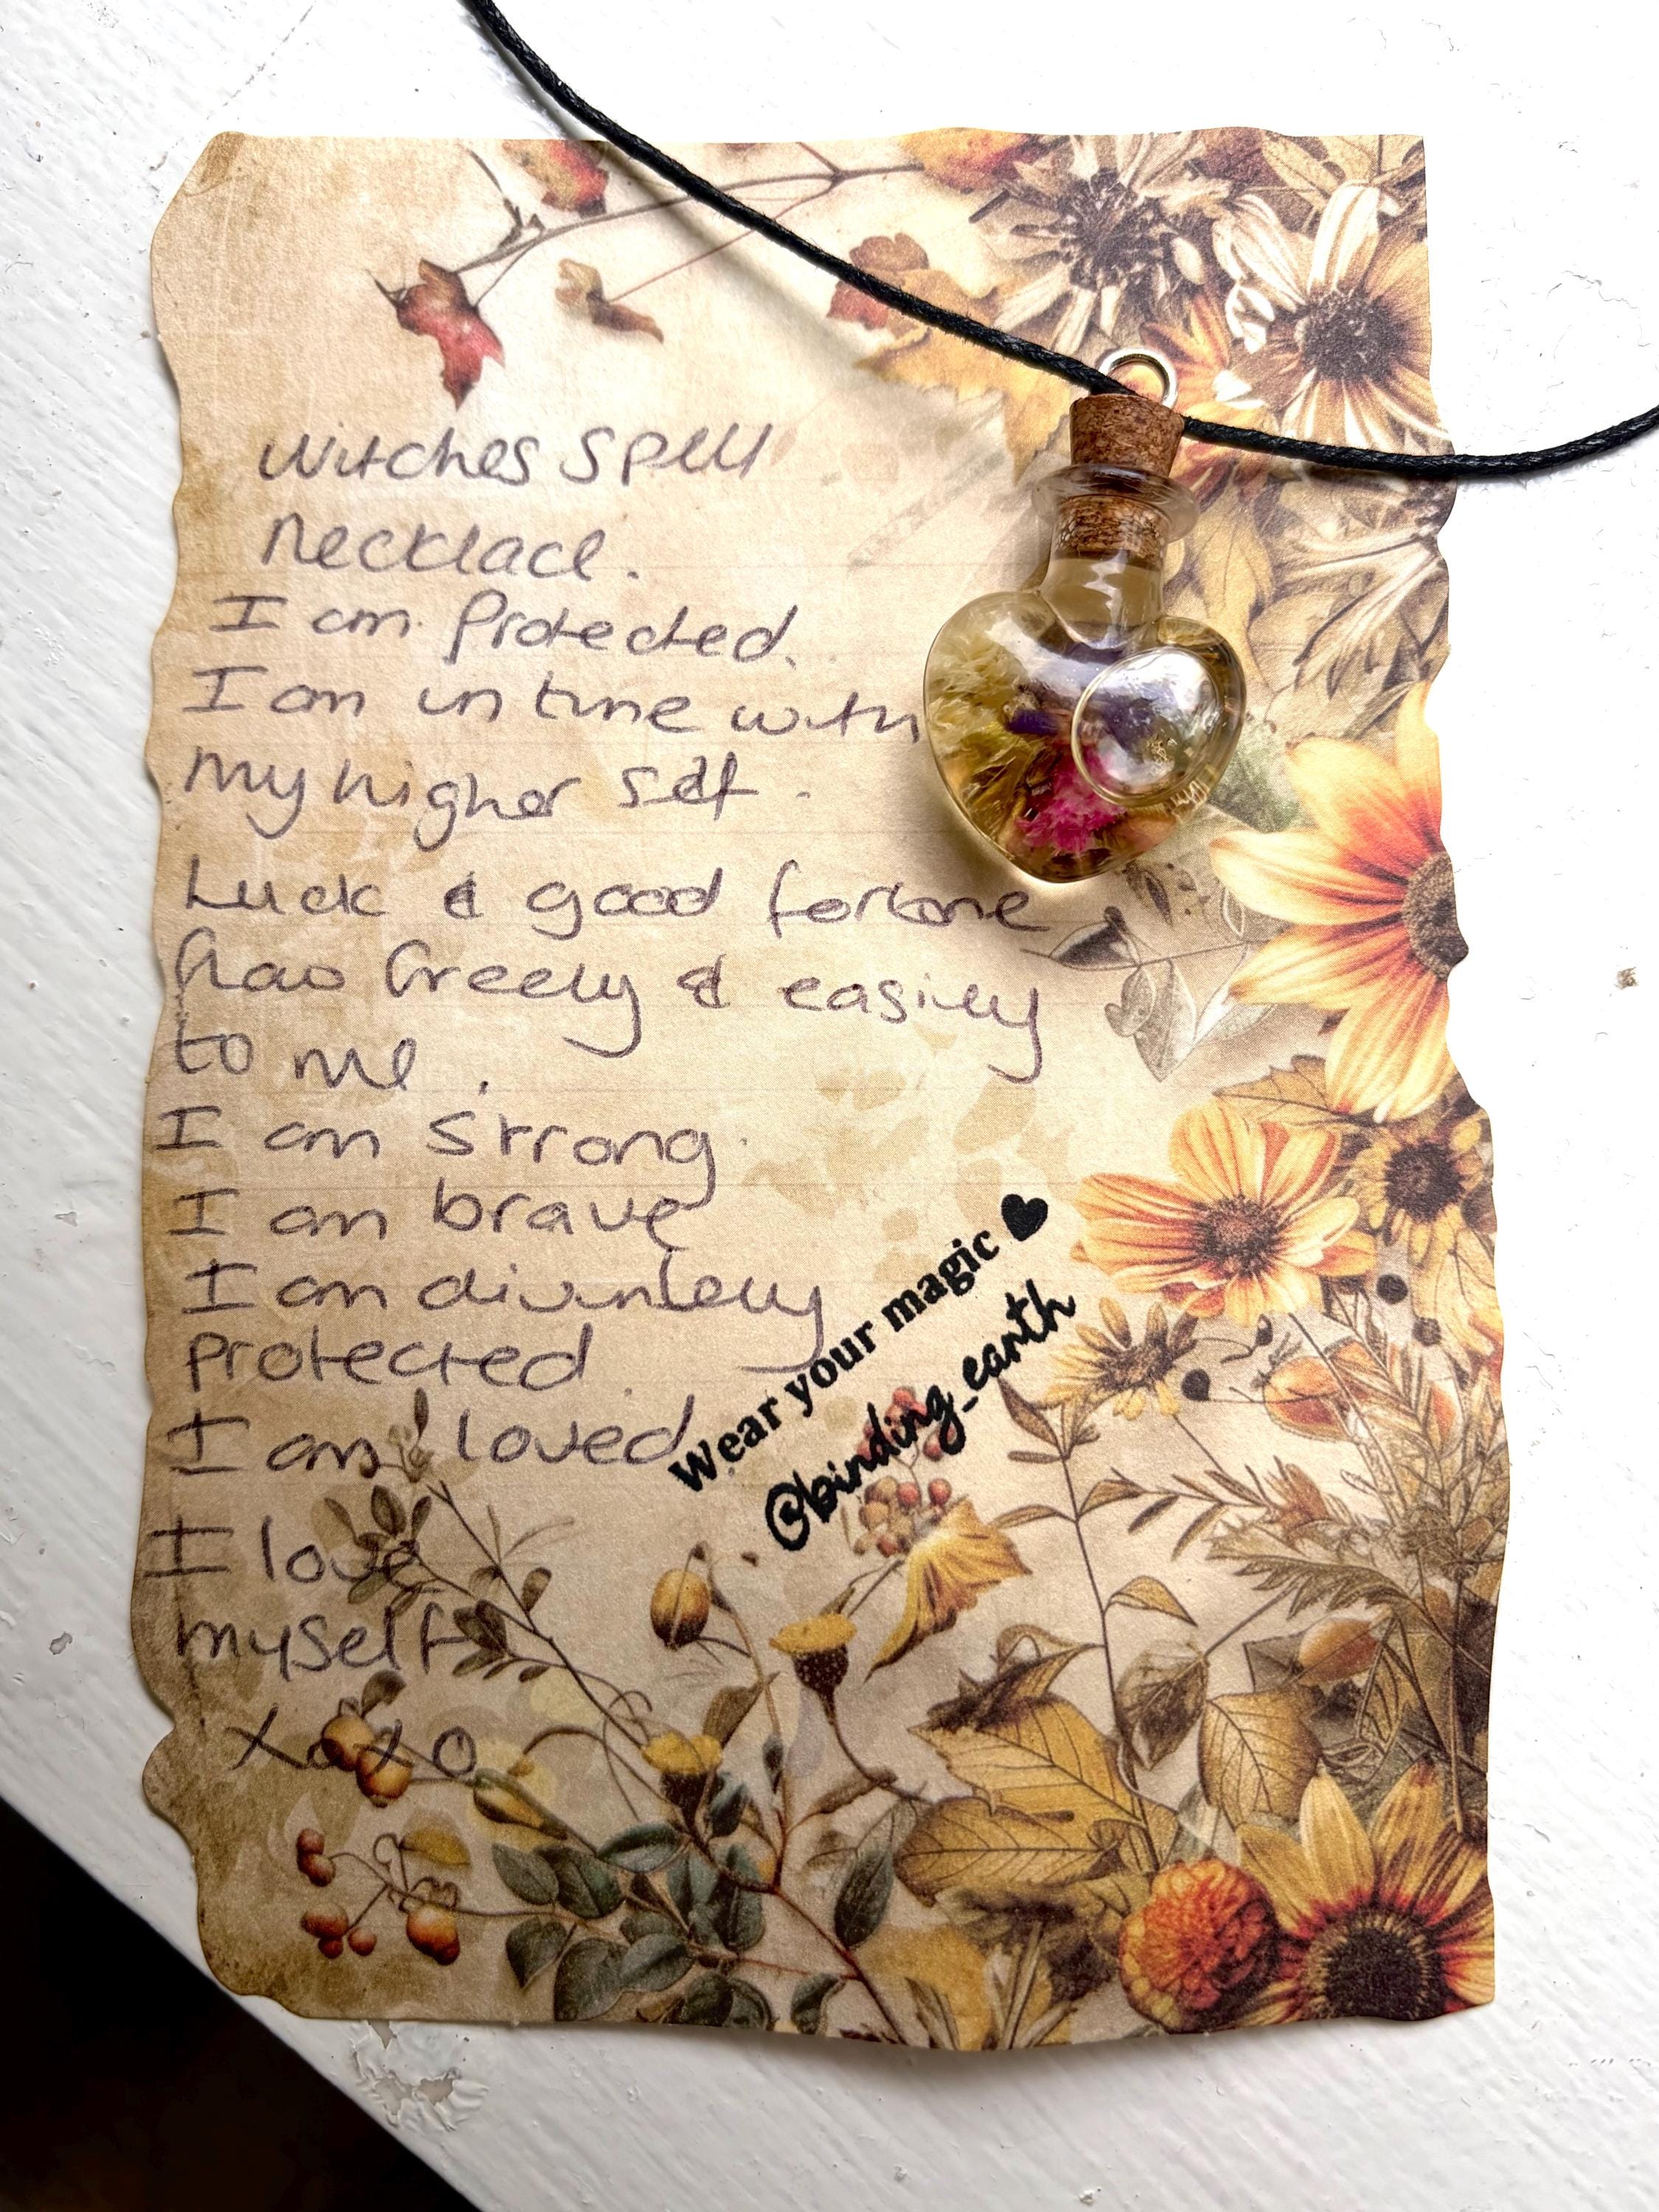 Witches Spell
Necklace.
I am Protected.
I am in tune with
my higher self.
Luck & good fortune
flow freely & easily
to me.
I am strong.
I am brave
I am divinley
protected.
I am loved
I love
myself
xoxo
Wear your magic ♥
@binding_earth